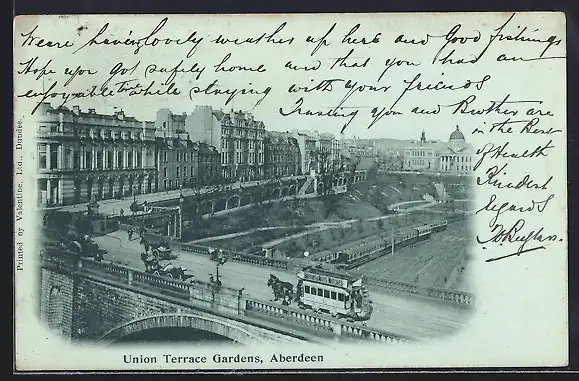 We are having lovely weather up here and Good fishings
Hope you Got safely home and that you had an
enjoyable time while staying with your friends
Trusting you and Brother are
in the Best
of Health
Kindest
regards
Printed by Valentine, Ltd., Dundee.
Union Terrace Gardens, Aberdeen